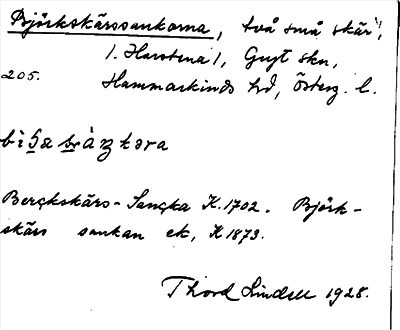 Björkskärssankorna, två små skär,
1. Harstena 1, Gryt skn,
205. Hammarkinds hd, Österg. l.
Bergkskärs-Sangka K. 1702. Björk-
skärs sankan ek, K 1873.
Thord Lindell 1928.